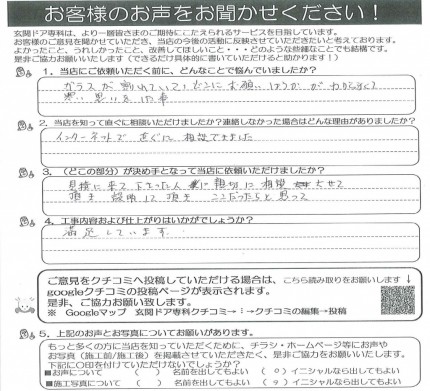 お客様のお声をお聞かせください！
玄関ドア専科は、より一層皆さまのご期待にこたえられるサービスを目指しています。
お客様のご意見を聞かせていただき、当店の今後の活動に反映させていただきたいと考えております。
よかったこと、うれしかったこと、改善してほしいこと・・・どのような些細なことでも結構です。
是非ご協力お願いいたします（できるだけ具体的に書いていただけると助かります！）
1．当店にご依頼いただく前に、どんなことで悩んでいましたか？
ガラスが割れていて、どこにお願いはりかがわからなくて
思いをした事
2．当店を知って直ぐに相談いただけましたか？連絡しなかった場合はどんな理由がありましたか？
インターネットで直ぐに相談できました
3．（どこの部分）が決め手となって当店に依頼いただけましたか？
見積に来て下さった人に親切に相談させて
頂き説明して頂きここだったらと思って
4．工事内容および仕上がりはいかがでしょうか？
満足しています．
ご意見をクチコミへ投稿していただける場合は、こちら読み取りをお願いします↓
googleクチコミの投稿ページが表示されます。
是非、ご協力お願い致します。
※ Googleマップ 玄関ドア専科クチコミ→⋮→クチコミの編集→投稿
5．上記のお声とお写真についてお願いがあります。
もっと多くの方に当店を知っていただくために、チラシ・ホームページ等にお声や
お写真（施工前/施工後）を掲載させていただきたく、是非ご協力をお願いいたします。
下記に○印を付けていただけないでしょうか？
■お声について （ ）名前を出してもよい （○）イニシャルなら出してもよい
■施工写真について （ ）名前を出してもよい （○）イニシャルなら出してもよい